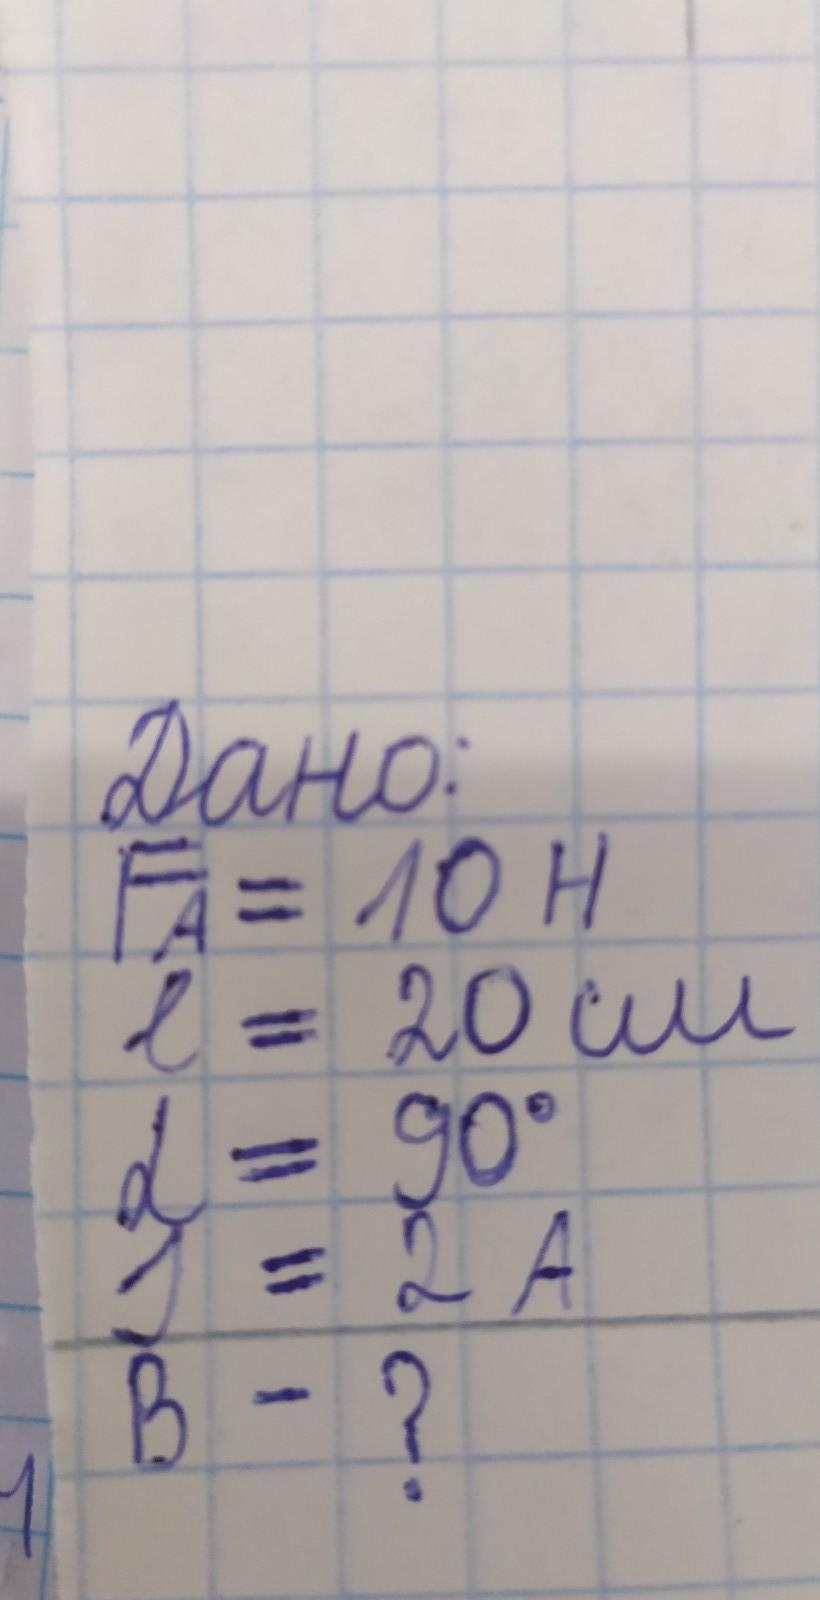 Дано:
F_A = 10 Н
l = 20 см
α = 90°
J = 2 А
B - ?
1